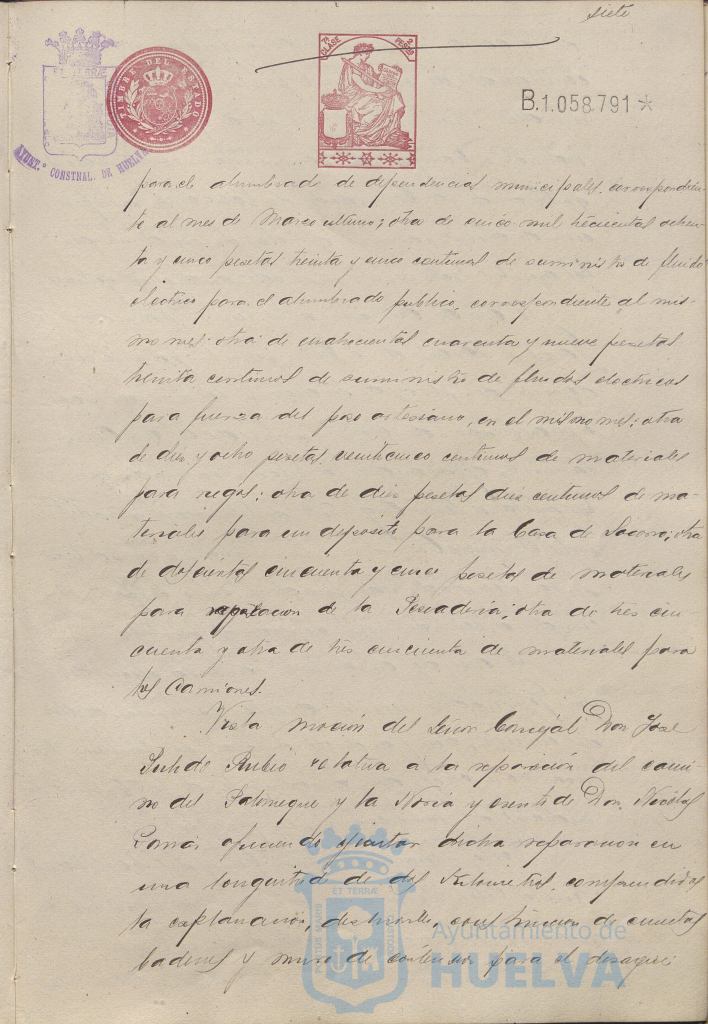 siete
ET TERRÆ
AYUNT.º CONSTNAL. DE HUELVA
TIMBRE DEL ESTADO
7ª CLASE
2 PESETAS
B.1.058.791*
para el alumbrado de dependencias municipales correspondien-
te al mes de Marzo ultimo; otra de cinco mil trecientas ochen-
ta y cinco pesetas treinta y cinco centimos de suministro de fluido
electrico para el alumbrado publico, correspondiente al mis-
mo mes: otra de cuatrocientas cuarenta y nueve pesetas
treinta centimos de suministro de fluidos electricos
para fuerza del pozo artesiano, en el mismo mes; otra
de diez y ocho pesetas veinticinco centimos de materiales
para riegos; otra de diez pesetas diez centimos de ma-
teriales para un deposito para la Casa de Socorro; otra
de doscientas cincuenta y cinco pesetas de materiales
para reparacion de la Pescaderia; otra de tres cin
cuenta y otra de tres cincuenta de materiales para
los Camiones.
Vista mocion del Señor Concejal Don Jose
Rubio relativa á la reparación del cami
no del y la Noria y escrito de Don Nicolas
Gomez ofreciendo ejecutar dicha reparacion en
una longuitud de dos Kilometros, comprendidos
la explanacion, desbroce, construccion de cunetas
badenes y muro de contencion para el desague
PORTUS MARIS
ET TERRÆ
CUSTODIA
Ayuntamiento de
HUELVA